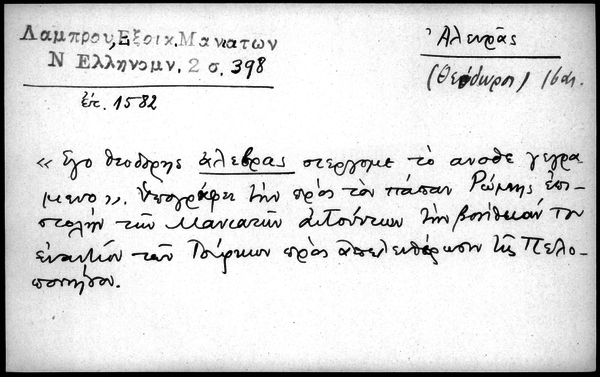 Λαμπρου, Εξοικ. Μανιατων
Ν Ελληνομν. 2 σ. 398
ἔτ. 1582
Ἀλευρᾶς
(Θεόδωρος) 16 αι.
« Εγο θεοδορης ἀλεβρας στεργομε το ανοθε γεγρα
μενο ». Ὑπογράφει τὴν πρὸς τὸν πάπαν Ρώμης ἐπι-
στολὴν τῶν Μανιατῶν αἰτούντων τὴν βοήθειάν του
ἐναντίον τῶν Τούρκων πρὸς ἀπελευθέρωσιν τῆς Πελο-
ποννήσου.